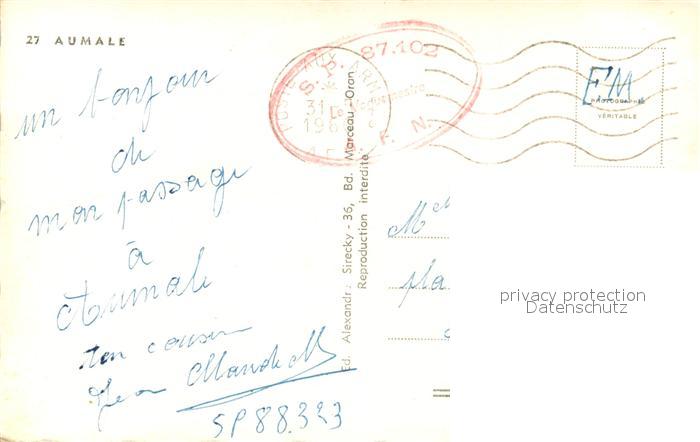 27 AUMALE
un bonjour
de
mon passage
à
Aumale
ton cousin
Jean
SP 88.323
POSTE AUX ARMÉES
31
196
S.P. 87.102
Le Vaguemestre
F. N.
Ed. Alexandre Sirecky - 36, Bd. Marceau - Oran
Reproduction interdite
FM
PHOTOGRAPHIE
VÉRITABLE
Mel
pla
privacy protection
Datenschutz